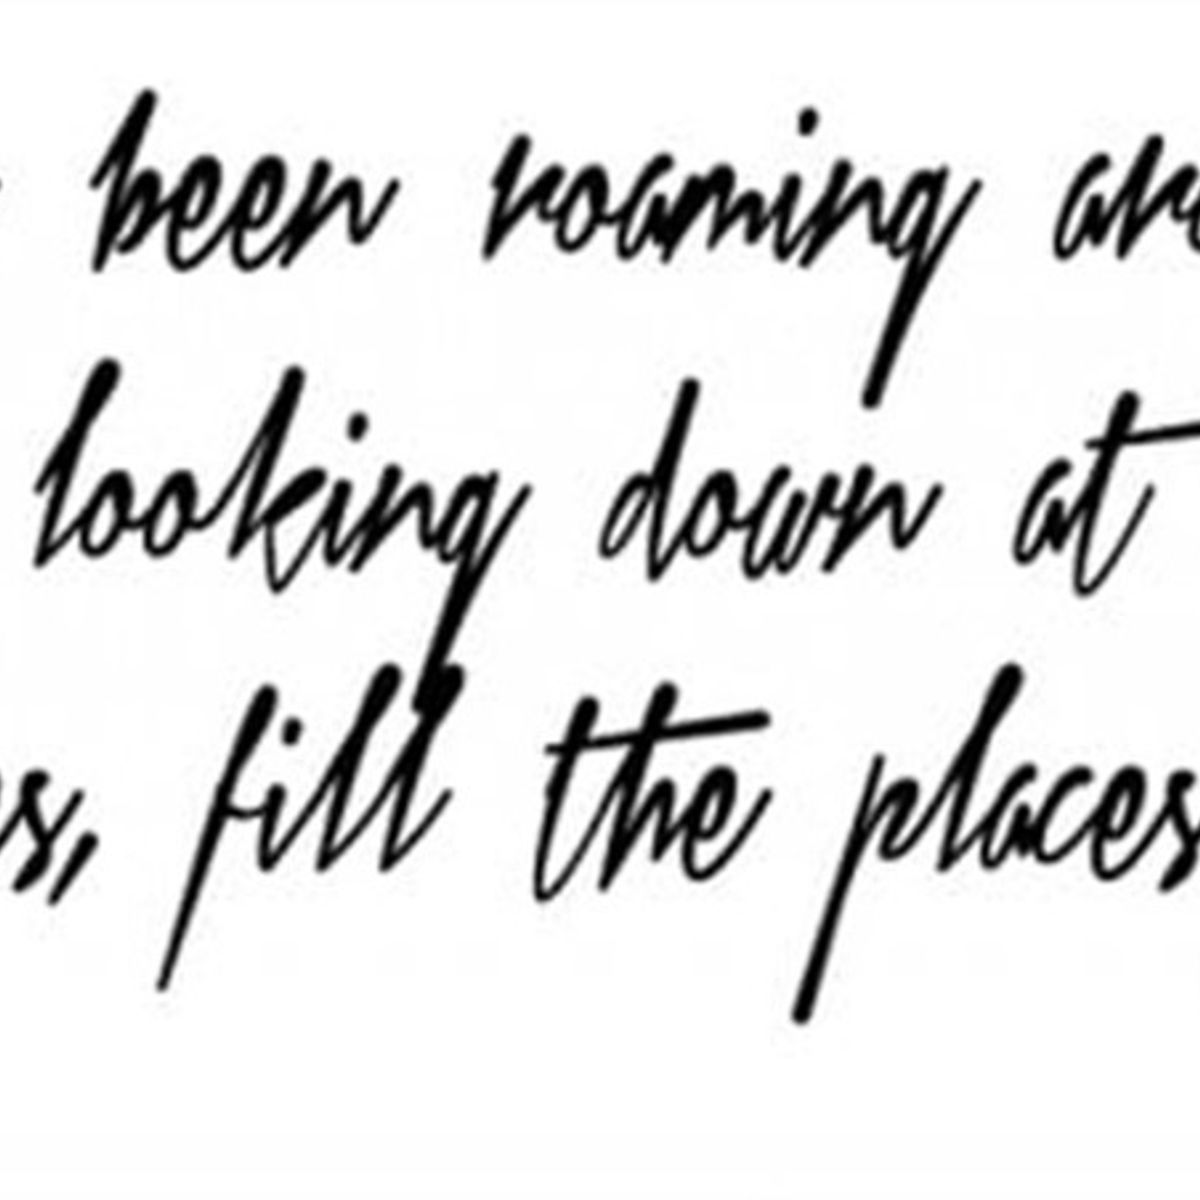 been roaming
looking down at
fill the places